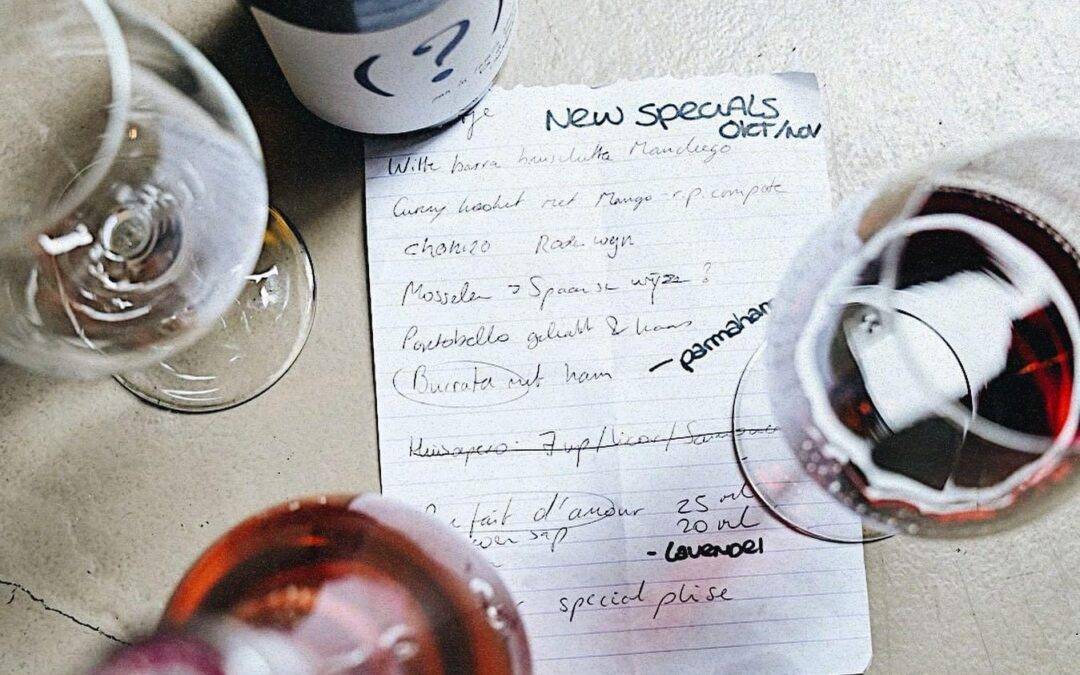 (?)
NEW SPECIALS
OKT/NOV
Witte barra bruschetta Manchego
Curry kochet met Mango-r.p. compote
chorizo Rode wijn
Mosselen → Spaanse wijze?
Portobello gehakt & kaas
Burrata met ham
- parmaham
7up/licor/
Parfait d'amour 25 ml
sap 20 ml
- LAVENDEL
special plise